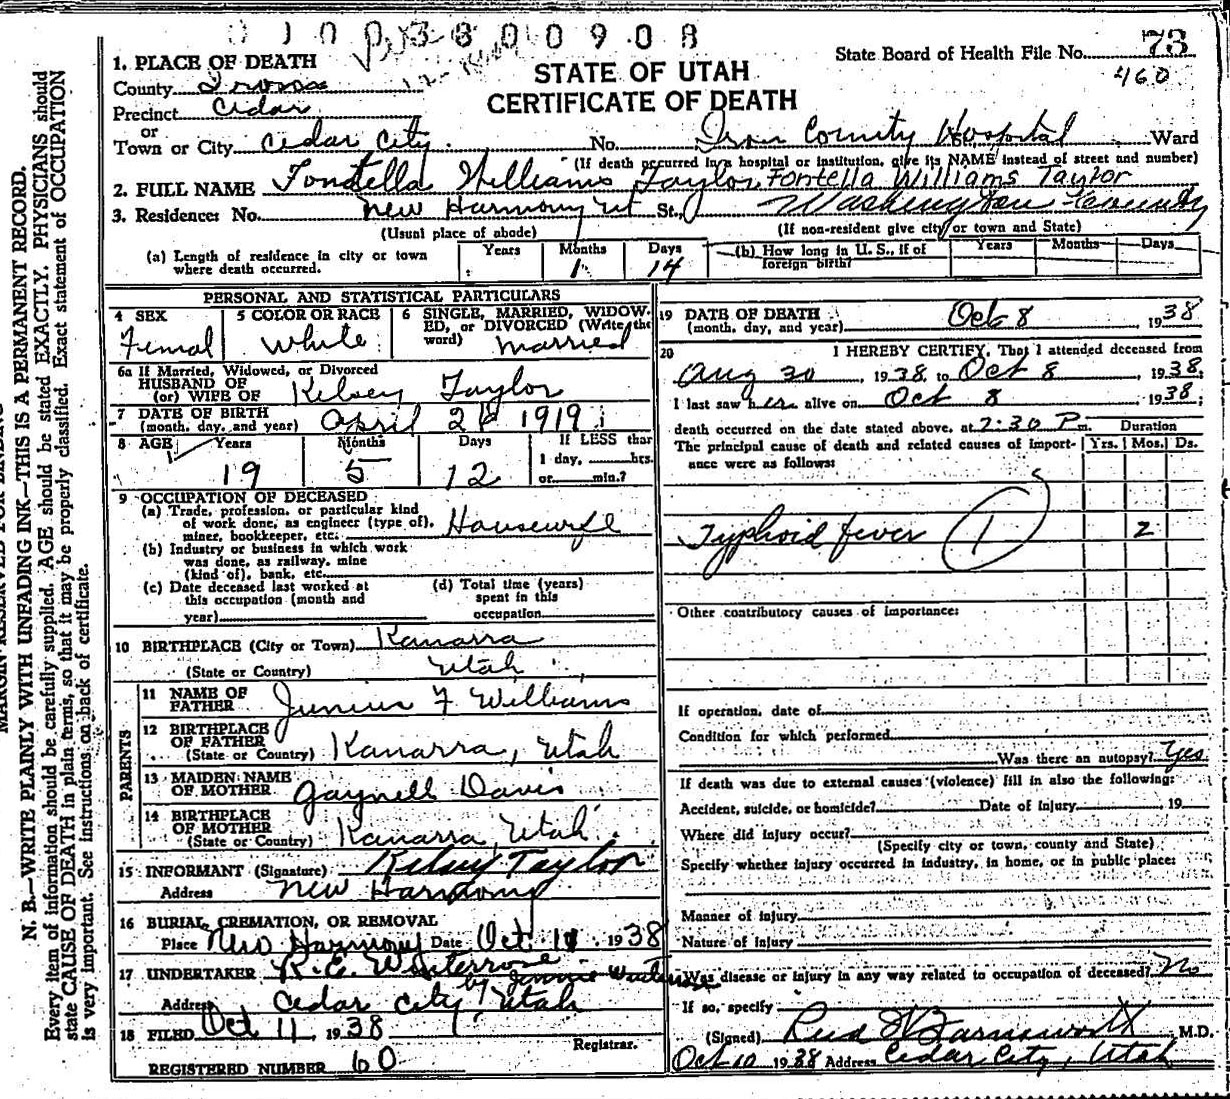 01003800908
State Board of Health File No. 73
460
1. PLACE OF DEATH
County Iron
STATE OF UTAH
Precinct Cedar
CERTIFICATE OF DEATH
or
Town or City Cedar City. No. Iron County Hospital Ward
(If death occurred in a hospital or institution, give its NAME instead of street and number)
2. FULL NAME Fontella Williams Taylor Fontella Williams Taylor
3. Residence: No. New Harmony Ut St., Washington County
(Usual place of abode) (If non-resident give city or town and State)
(a) Length of residence in city or town where death occurred. Years Months 1 Days 14 (b) How long in U. S., if of foreign birth? Years Months Days
PERSONAL AND STATISTICAL PARTICULARS
4 SEX 5 COLOR OR RACE 6 SINGLE, MARRIED, WIDOWED, or DIVORCED (Write the word)
Femal White Married
6a If Married, Widowed, or Divorced
HUSBAND OF
(or) WIFE OF Kelsey Taylor
7 DATE OF BIRTH
(month, day, and year) April 26 1919
8 AGE Years Months Days If LESS than
1 day, hrs.
19 5 12 or min.?
9 OCCUPATION OF DECEASED
(a) Trade, profession, or particular kind
of work done, as engineer (type of),
miner, bookkeeper, etc. Housewife
(b) Industry or business in which work
was done, as railway, mine
(kind of), bank, etc.
(c) Date deceased last worked at (d) Total time (years)
this occupation (month and spent in this
year) occupation
10 BIRTHPLACE (City or Town) Kanarra
(State or Country) Utah
PARENTS
11 NAME OF
FATHER Junius F Williams
12 BIRTHPLACE
OF FATHER
(State or Country) Kanarra, Utah
13 MAIDEN NAME
OF MOTHER Gaynell Davis
14 BIRTHPLACE
OF MOTHER
(State or Country) Kanarra, Utah.
15 INFORMANT (Signature) Kelsey Taylor
Address New Harmony
16 BURIAL, CREMATION, OR REMOVAL
Place New Harmony Date Oct. 11. 1938
17 UNDERTAKER R. E. Winterrose
by Jennie
Address Cedar City, Utah
18 FILED Oct 11, 1938
Registrar.
REGISTERED NUMBER 60
19 DATE OF DEATH
(month, day, and year) Oct 8, 1938
20 I HEREBY CERTIFY, That I attended deceased from
Aug 30, 1938, to Oct 8, 1938,
I last saw her alive on Oct 8, 1938,
death occurred on the date stated above, at 2:30 P m. Duration
The principal cause of death and related causes of importance were as follows: Yrs. Mos. Ds.
Typhoid fever 1 2
Other contributory causes of importance:
If operation, date of
Condition for which performed
Was there an autopsy? Yes
If death was due to external causes (violence) fill in also the following:
Accident, suicide, or homicide? Date of injury 19
Where did injury occur?
(Specify city or town, county and State)
Specify whether injury occurred in industry, in home, or in public place:
Manner of injury
Nature of injury
Was disease or injury in any way related to occupation of deceased? No
If so, specify
(Signed) Reid Farnsworth, M.D.
Oct 10 1938 Address Cedar City, Utah
N. B.—WRITE PLAINLY WITH UNFADING INK—THIS IS A PERMANENT RECORD.
Every item of information should be carefully supplied. AGE should be stated EXACTLY. PHYSICIANS should
state CAUSE OF DEATH in plain terms, so that it may be properly classified. Exact statement of OCCUPATION
is very important. See instructions on back of certificate.